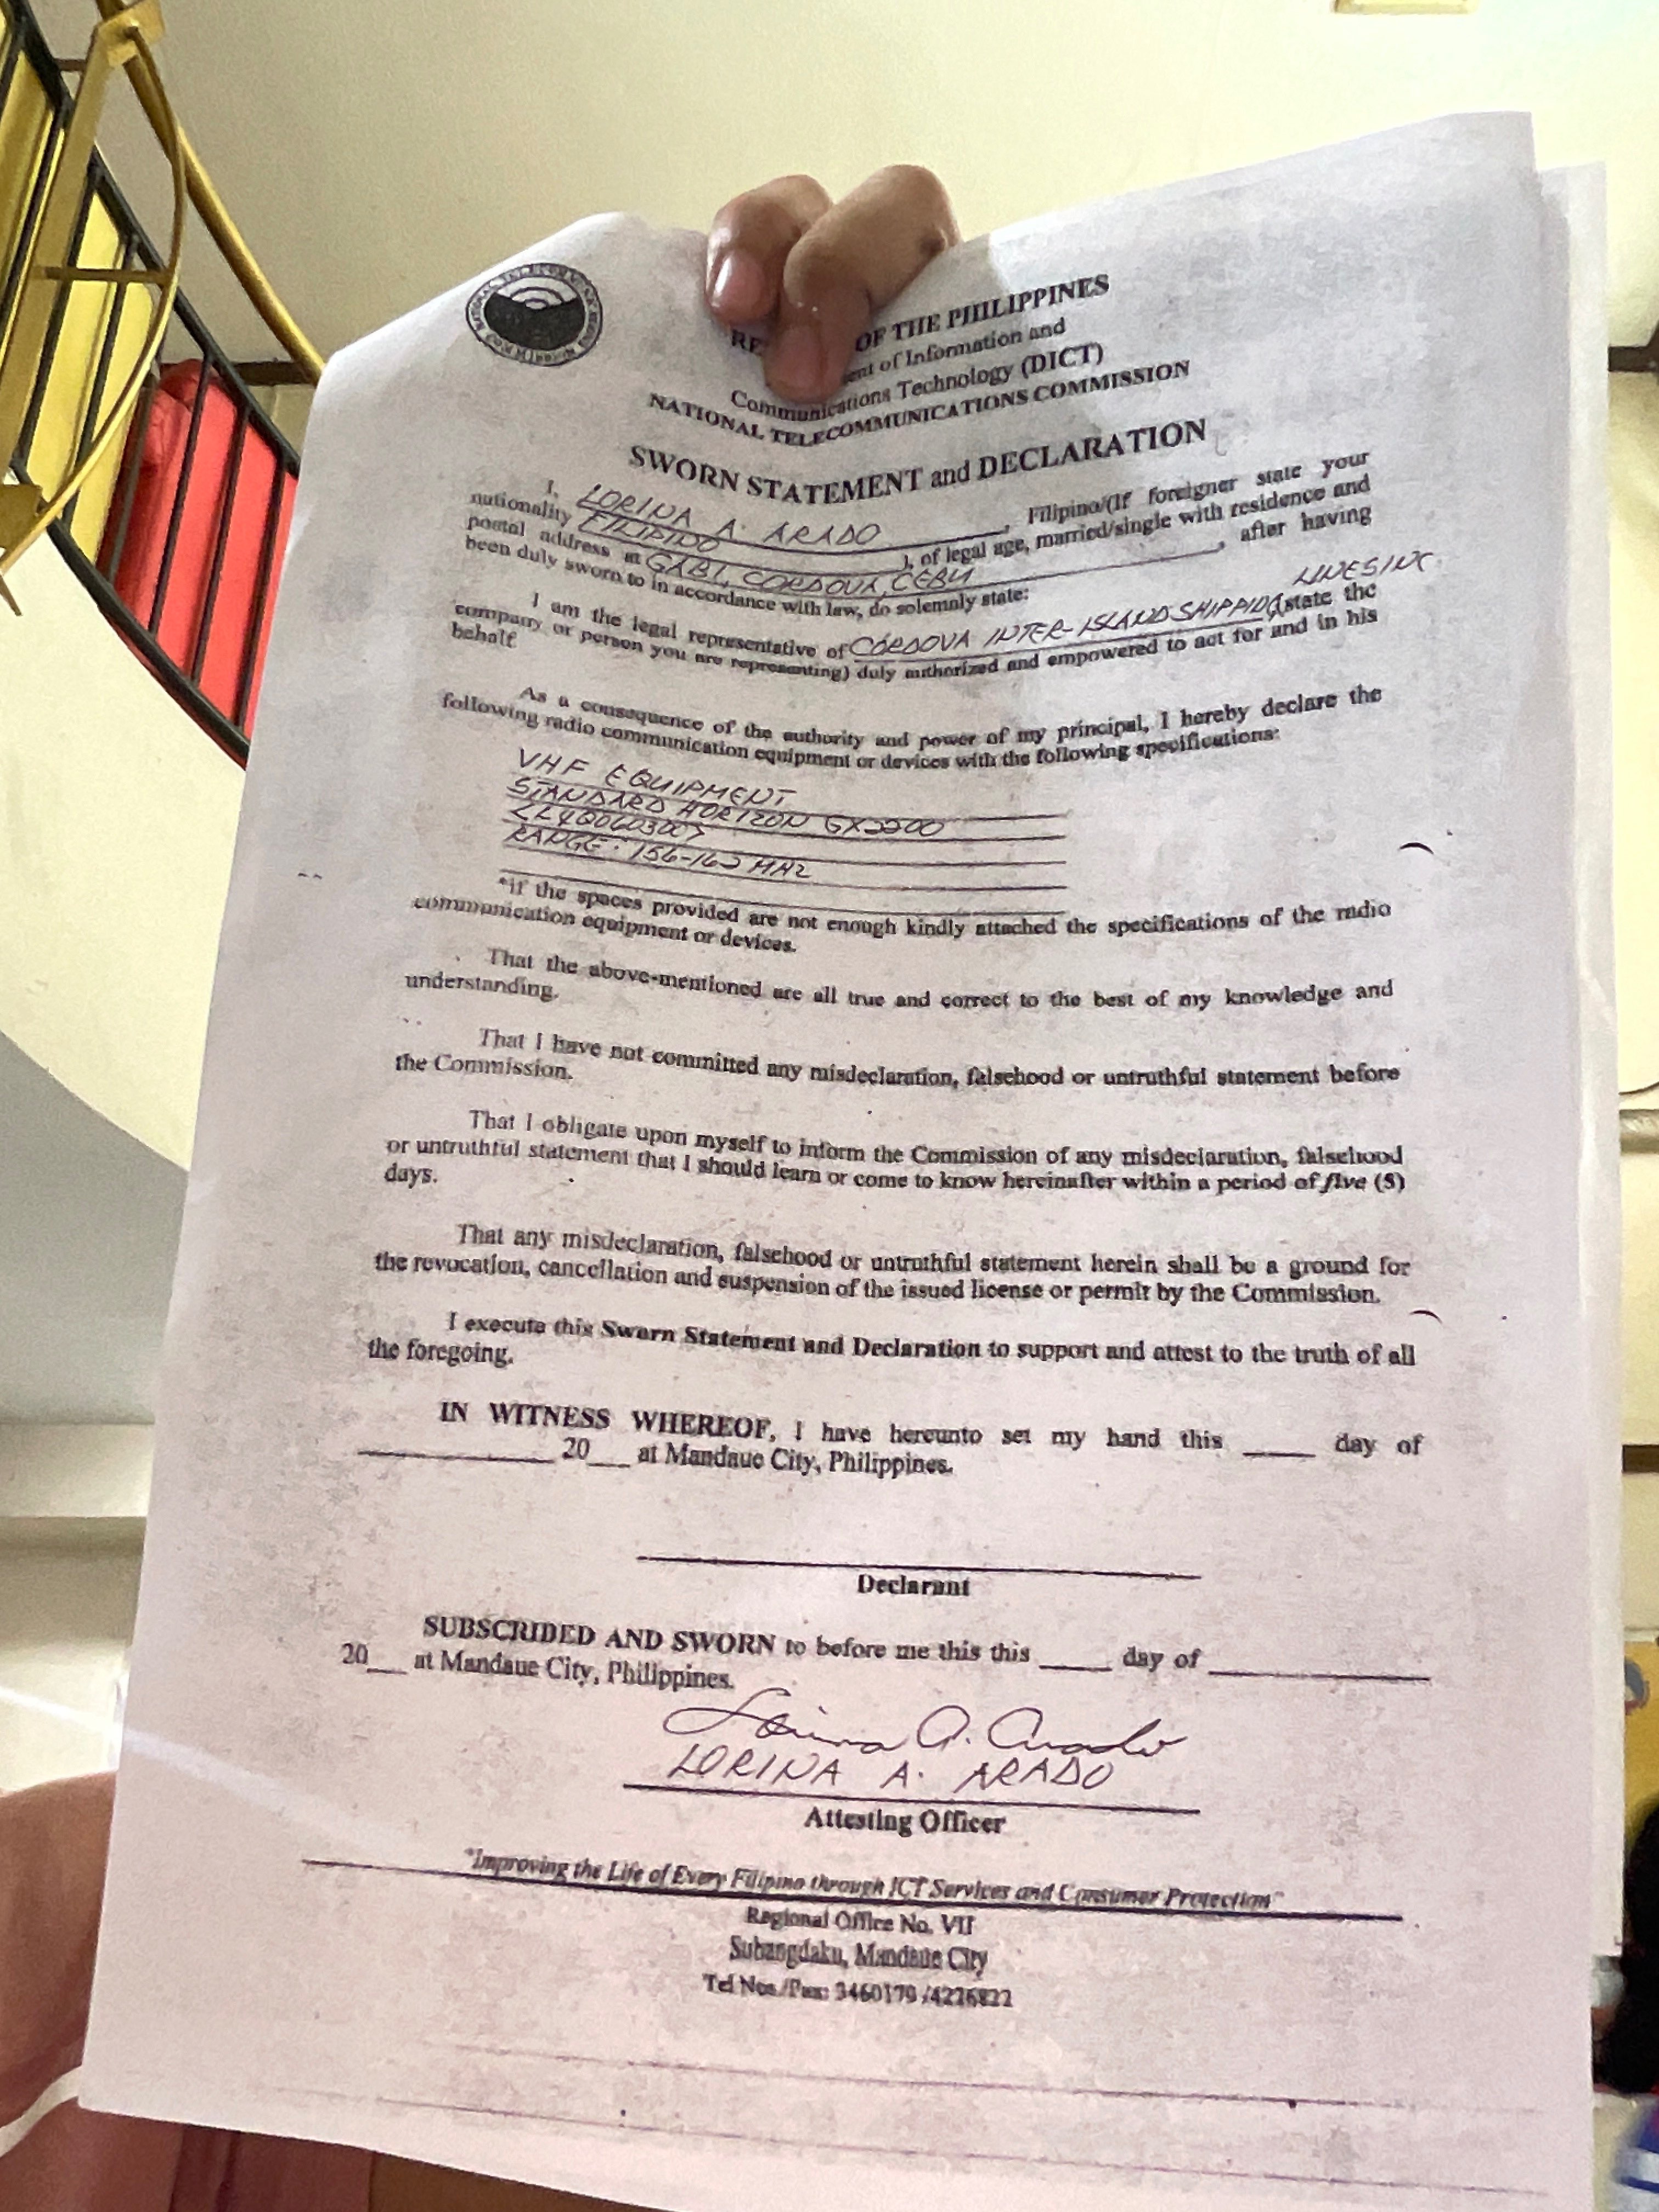 OF THE PHILIPPINES
of Information and
Communications Technology (DICT)
NATIONAL TELECOMMUNICATIONS COMMISSION
SWORN STATEMENT and DECLARATION
I, LORINA A. ARADO, Filipino/(If foreigner state your
nationality FILIPINO), of legal age, married/single with residence and
postal address at GABI, CORDOVA, CEBU, after having
been duly sworn to in accordance with law, do solemnly state:
LINES INC.
I am the legal representative of CORDOVA INTER-ISLAND SHIPPING (state the
company or person you are representing) duly authorized and empowered to act for and in his
behalf.
As a consequence of the authority and power of my principal, I hereby declare the
following radio communication equipment or devices with the following specifications:
VHF EQUIPMENT
STANDARD HORIZON GX2200
RANGE: 156-162 MHZ
*if the spaces provided are not enough kindly attached the specifications of the radio
communication equipment or devices.
That the above-mentioned are all true and correct to the best of my knowledge and
understanding.
That I have not committed any misdeclaration, falsehood or untruthful statement before
the Commission.
That I obligate upon myself to inform the Commission of any misdeclaration, falsehood
or untruthful statement that I should learn or come to know hereinafter within a period of five (5)
days.
That any misdeclaration, falsehood or untruthful statement herein shall be a ground for
the revocation, cancellation and suspension of the issued license or permit by the Commission.
I execute this Sworn Statement and Declaration to support and attest to the truth of all
the foregoing.
IN WITNESS WHEREOF, I have hereunto set my hand this ____ day of
____ 20__ at Mandaue City, Philippines.
Declarant
SUBSCRIBED AND SWORN to before me this this ____ day of ____
20__ at Mandaue City, Philippines.
Lorina A. Arado
LORINA A. ARADO
Attesting Officer
"Improving the Life of Every Filipino through ICT Services and Consumer Protection"
Regional Office No. VII
Subangdaku, Mandaue City
Tel Nos./Fax: 3460179 /4226822